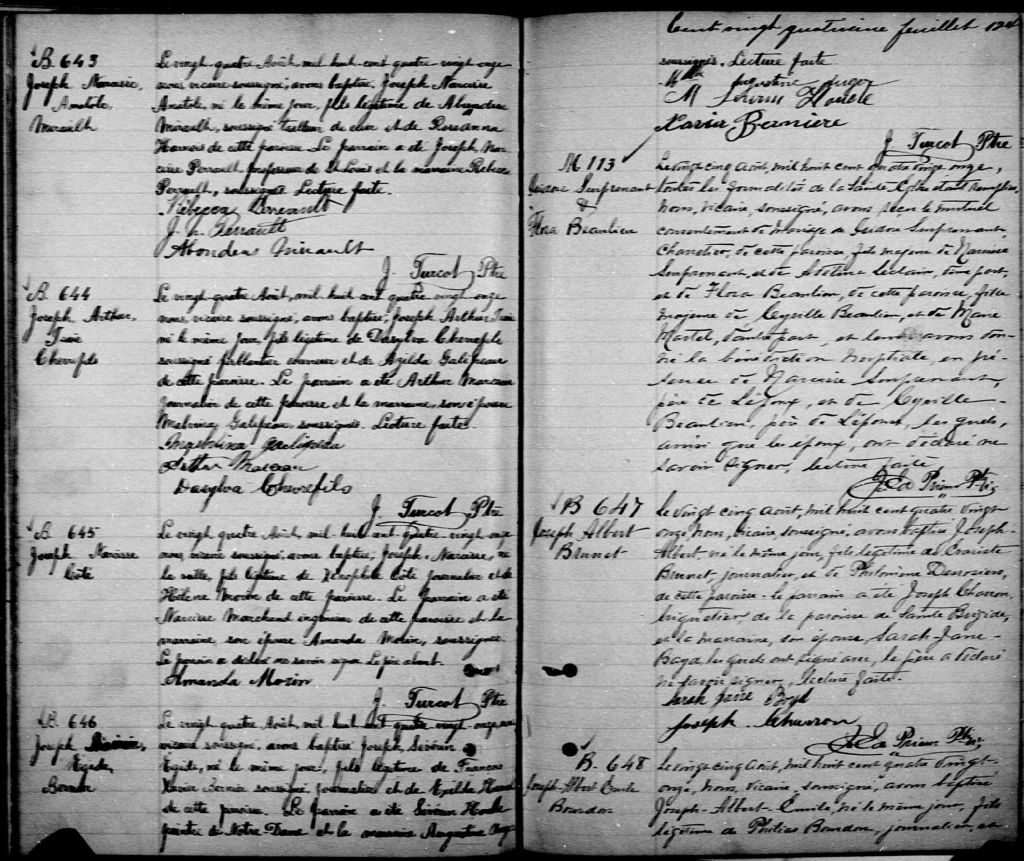 B. 643
Joseph Narcisse,
Anatole
Mirault
Le vingt quatre Août, mil huit cent quatre vingt onze
nous vicaire soussigné, avons baptisé, Joseph Narcisse
Anatole, né le même jour, fils légitime de
Mirault, soussigné tailleur de cuir et de Roseanna
de cette paroisse. Le parrain a été Joseph, Nar-
cisse Perrault, professeur de St Louis et la marraine Rébecca
Perrault, soussignés. Lecture faite.
Rébecca Perrault
J. N. Perrault
Mirault
J. Turcot Ptre
B. 644
Joseph Arthur,
Chevrefils
Le vingt quatre Août, mil huit cent quatre vingt onze
nous vicaire soussigné, avons baptisé, Joseph Arthur
né le même jour, fils légitime de Dasylva Chevrefils
soussigné ferblantier couvreur et de Azilda Galipeau
de cette paroisse. Le parrain a été Arthur
journalier de cette paroisse et la marraine, son épouse
Malvina Galipeau, soussignés. Lecture faite.
Malvina Galipeau
Arthur
Dasylva Chevrefils
J. Turcot Ptre
B. 645
Joseph Narcisse
Côté
Le vingt quatre Août, mil huit cent quatre vingt onze
nous vicaire soussigné, avons baptisé, Joseph, Narcisse, né
la veille, fils légitime de Xénophile Côté journalier et de
Hélène Morin de cette paroisse. Le parrain a été
Narcisse Marchand ingénieur de cette paroisse et la
marraine, son épouse Amanda Morin, soussignée.
Le parrain a déclaré ne savoir signer. Le père absent.
Amanda Morin
J. Turcot Ptre
B. 646
Joseph
Egide,
Le vingt quatre Août, mil huit cent quatre vingt onze nous
vicaire soussigné, avons baptisé, Joseph, Sévérin
Egide, né le même jour, fils légitime de François
Xavier Bernier soussigné, journalier et de
de cette paroisse. Le parrain a été Sévérin
peintre de Notre Dame et la marraine Augustine
Cent vingt quatrième feuillet 124
soussignés. Lecture faite
Augustine
M Séverin
Xavier Berniere
J. Turcot Ptre
M 113
Isidore Surprenant
&
Flora Beaulieu
Le vingt cinq août, mil huit cent quatre vingt onze,
toutes les formalités de la Sainte Eglise étant remplies,
Nous, vicaire, soussigné, avons reçu le mutuel
consentement de mariage de Isidore Surprenant,
Charretier, de cette paroisse, fils majeur de Narcisse
Surprenant, et de Adeline Leclair, d'une part,
et de Flora Beaulieu, de cette paroisse, fille
majeure de Cyrille Beaulieu, et de Marie
Martel, d'autre part, et leur avons don-
né la bénédiction nuptiale, en pré-
sence de Narcisse Surprenant,
père de l'époux, et de Cyrille
Beaulieu, père de l'épouse, lesquels,
ainsi que les époux, ont déclaré ne
savoir signer, lecture faite
J. La Prieur Ptre
B 647
Joseph Albert
Brunet
Le vingt cinq août, mil huit cent quatre vingt
onze, Nous, vicaire soussigné, avons baptisé Joseph-
Albert, né le même jour, fils légitime de
Brunet, journalier, et de Philomène Desrosiers,
de cette paroisse. le parrain a été Joseph Charron,
briquetier, de la paroisse de Sainte Brigide,
et la marraine, son épouse, Sarah-Jane
lesquels ont signé avec, le père a déclaré
ne savoir signer, lecture faite.
Sarah Jane
Joseph Charron
J. La Prieur Ptre
B. 648
Joseph-Albert Emile
Bourdon
Le vingt cinq août, mil huit cent quatre vingt-
onze, Nous, vicaire, soussigné, avons baptisé
Joseph-Albert-Emile, né le même jour, fils
légitime de Philias Bourdon, journalier, et